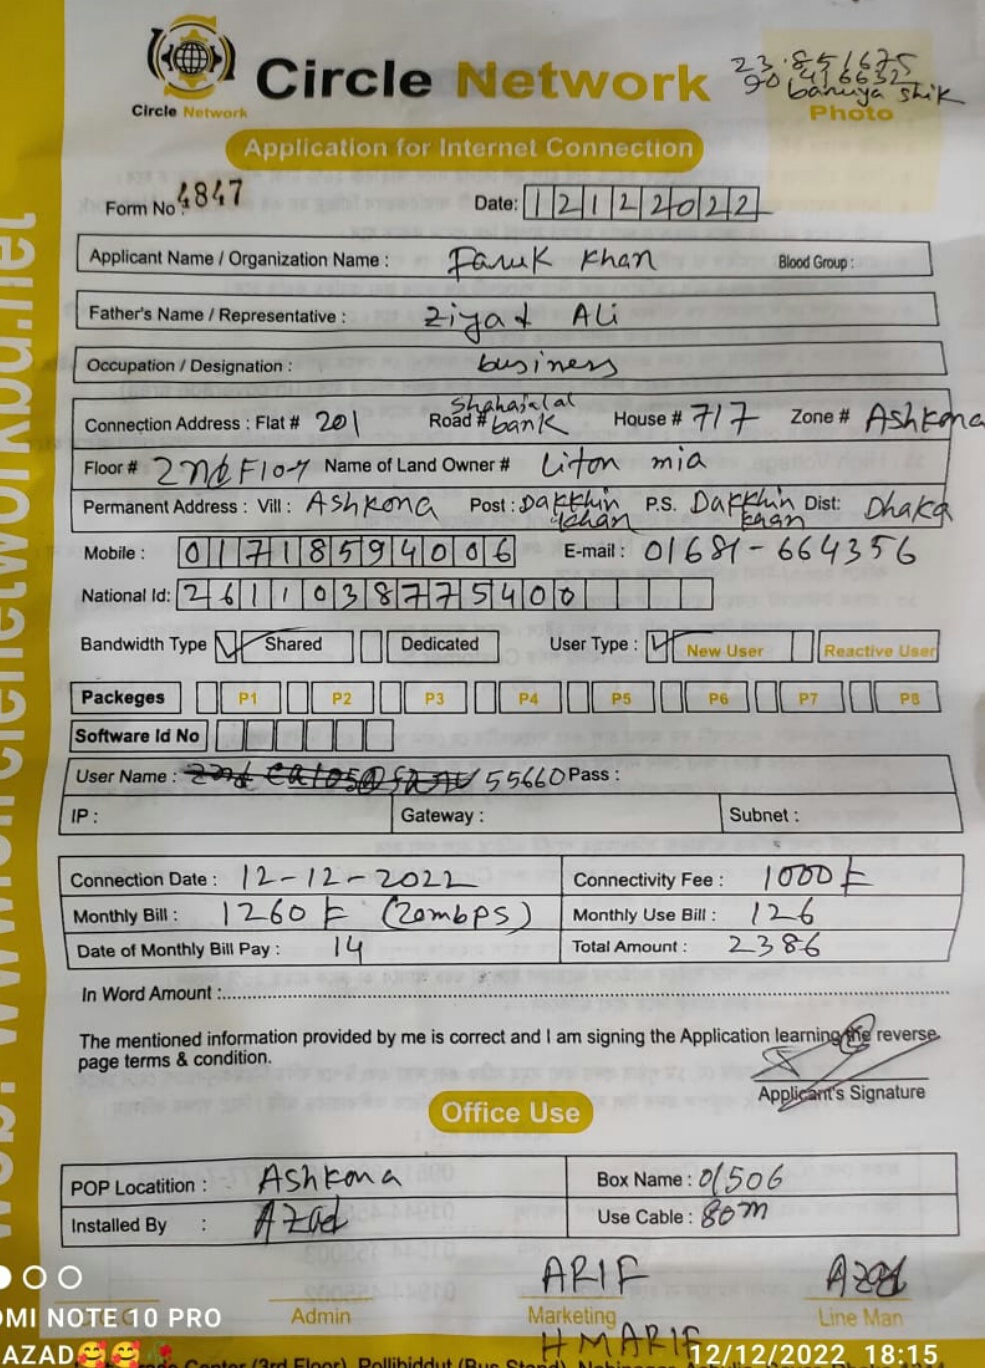 23.851675
90.416632
Circle Network
Circle Network
Photo
Application for Internet Connection
Form No : 4847 Date: 12122022
Applicant Name / Organization Name : Faruk Khan Blood Group :
Father's Name / Representative : Ziyad Ali
Occupation / Designation : business
Connection Address : Flat # 201 Road # Shahajalal bank House # 717 Zone # Ashkona
Floor # 2nd Flor Name of Land Owner # Liton mia
Permanent Address : Vill : Ashkona Post : Dakkhin khan P.S. Dakkhin kaan Dist: Dhaka
Mobile : 01718594006 E-mail : 01681-664356
National Id: 2611038775400
Bandwidth Type Shared Dedicated User Type : New User Reactive User
Packeges P1 P2 P3 P4 P5 P6 P7 P8
Software Id No
User Name : 55660 Pass :
IP : Gateway : Subnet :
Connection Date : 12-12-2022 Connectivity Fee : 1000 ৳
Monthly Bill : 1260 ৳ (20mbps) Monthly Use Bill : 126
Date of Monthly Bill Pay : 14 Total Amount : 2386
In Word Amount :
The mentioned information provided by me is correct and I am signing the Application learning the reverse
page terms & condition.
Applicant's Signature
Office Use
POP Locatition : Ashkona Box Name : 01506
Installed By : Azad Use Cable : 80m
ARIF Azad
Admin Marketing Line Man
H M ARIF
MI NOTE 10 PRO
AZAD 12/12/2022 18:15
Center (3rd Floor), Pollibiddut (Bus Stand),